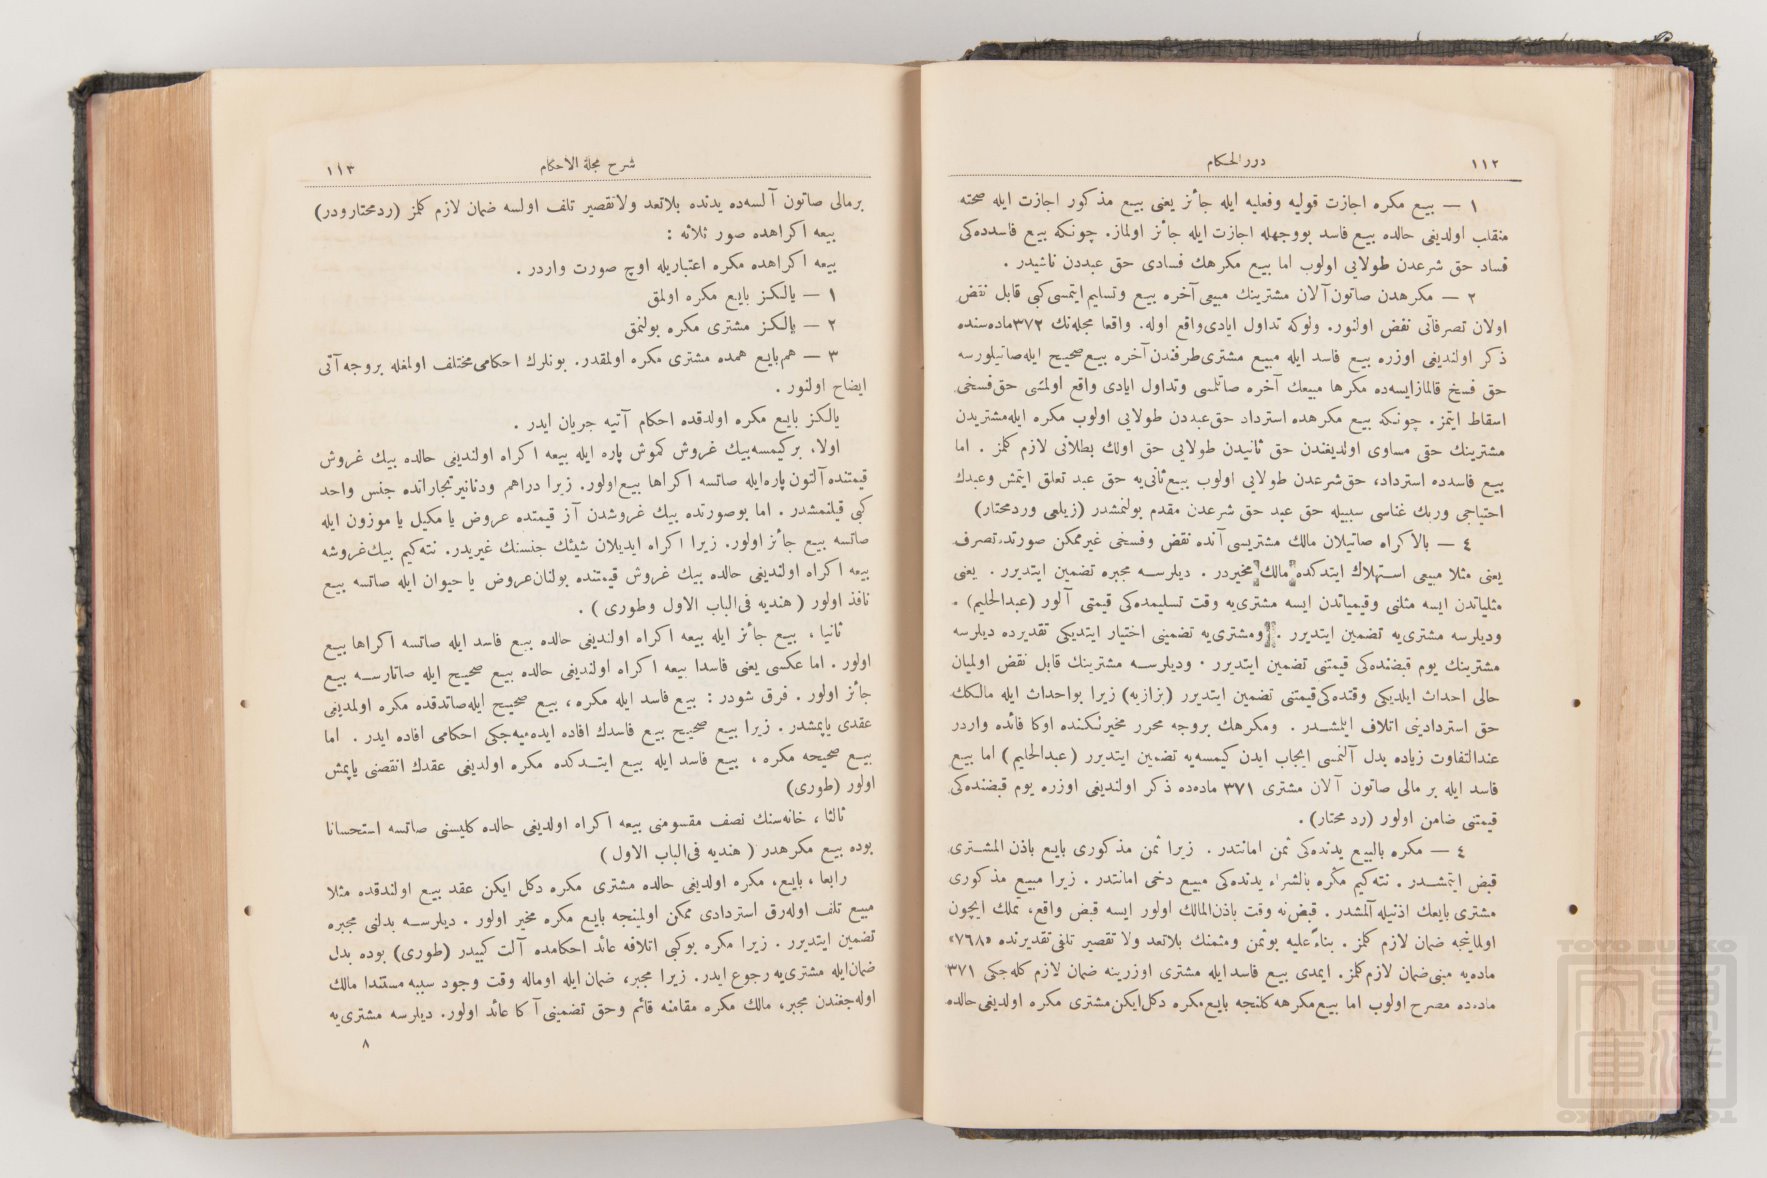 ١١٢
درر الحكام
١ — بيع مكره اجازت قوليه وفعليه ايله جائز يعنى بيع مذكور اجازت ايله صحته
منقلب اولديغى حالده بيع فاسد بووجهله اجازت ايله جائز اولماز. چونكه بيع فاسددەكى
فساد حق شرعدن طولايى اولوب اما بيع مكرهك فسادى حق عبددن ناشيدر .
٢ — مكرهدن صاتون آلان مشترينك مبيعى آخره بيع وتسليم ايتمسى كبى قابل نقض
اولان تصرفاتى نقض اولنور. ولوكه تداول ايادى واقع اوله. واقعا مجله‌نك ٣٧٢ماده‌سنده
ذكر اولنديغى اوزره بيع فاسد ايله مبيع مشترى طرفندن آخره بيع صحيح ايله صاتيلورسه
حق فسخ قالمازايسه‌ده مكرها مبيعك آخره صاتلمسى وتداول ايادى واقع اولمسى حق فسخى
اسقاط ايتمز. چونكه بيع مكرهده استرداد حق عبددن طولايى اولوب مكره ايله مشتريدن
مشترينك حقى مساوى اولديغندن حق ثانيدن طولايى حق اولك بطلانى لازم كلمز . اما
بيع فاسدده استرداد، حق شرعدن طولايى اولوب بيع ثانى‌يه حق عبد تعلق ايتمش وعبدك
احتياجى وربك غناسى سببيله حق عبد حق شرعدن مقدم بولنمشدر (زيلعى وردمحتار)
٤ — بالاكراه صاتيلان مالك مشتريسى آنده نقض وفسخى غيرممكن صورتده تصرف
يعنى مثلا مبيعى استهلاك ايتدكده مالك مخيردر . ديلرسه مجبره تضمين ايتديرر . يعنى
مثلياتدن ايسه مثلنى وقيمياتدن ايسه مشترى‌يه وقت تسليمده‌كى قيمتى آلور (عبدالحليم) .
وديلرسه مشترى‌يه تضمين ايتديرر . ومشترى‌يه تضمينى اختيار ايتديكى تقديرده ديلرسه
مشترينك يوم قبضنده‌كى قيمتنى تضمين ايتديرر . وديلرسه مشترينك قابل نقض اولميان
حالى احداث ايلديكى وقتده‌كى قيمتنى تضمين ايتديرر (بزازيه) زيرا بواحداث ايله مالكك
حق استردادينى اتلاف ايلمشدر . ومكرهك بروجه محرر مخيرلكنده اوكا فائده واردر
عندالتفاوت زياده بدل آلنمسى ايجاب ايدن كيمسه‌يه تضمين ايتديرر (عبدالحليم) اما بيع
فاسد ايله بر مالى صاتون آلان مشترى ٣٧١ ماده‌ده ذكر اولنديغى اوزره يوم قبضنده‌كى
قيمتنى ضامن اولور (رد محتار) .
٤ — مكره بالبيع يدنده‌كى ثمن امانتدر . زيرا ثمن مذكورى بايع باذن المشترى
قبض ايتمشدر . نته‌كيم مكره بالشراء يدنده‌كى مبيع دخى امانتدر . زيرا مبيع مذكورى
مشترى بايعك اذنيله آلمشدر . قبض نه وقت باذن المالك اولور ايسه قبض واقع، تملك ايچون
اولماينجه ضمان لازم كلمز . بناءً عليه بوثمن ومثمنك بلاتعد ولا تقصير تلفى تقديرنده «٧٦٨»
ماده‌يه مبنى ضمان لازم كلمز. ايمدى بيع فاسد ايله مشترى اوزرينه ضمان لازم كله‌جكى ٣٧١
ماده‌ده مصرح اولوب اما بيع مكرهه كلنجه بايع مكره دكل ايكن مشترى مكره اولديغى حالده
شرح مجلة الاحكام
١١٣
برمالى صاتون آلسه‌ده يدنده بلاتعد ولاتقصير تلف اولسه ضمان لازم كلمز (ردمحتارودر)
بيعه اكراهده صور ثلاثه :
بيعه اكراهده مكره اعتباريله اوچ صورت واردر .
١ — يالكز بايع مكره اولمق
٢ — يالكز مشترى مكره بولنمق
٣ — هم بايع همده مشترى مكره اولمقدر. بونلرك احكامى مختلف اولمغله بروجه آتى
ايضاح اولنور .
يالكز بايع مكره اولدقده احكام آتيه جريان ايدر .
اولا، بركيمسه بيك غروش كموش پاره ايله بيعه اكراه اولنديغى حالده بيك غروش
قيمتنده آلتون پاره ايله صاتسه اكراها بيع اولور. زيرا دراهم ودنانير تجاراتده جنس واحد
كبى قيلنمشدر . اما بوصورتده بيك غروشدن آز قيمتده عروض يا مكيل يا موزون ايله
صاتسه بيع جائز اولور. زيرا اكراه ايديلان شيئك جنسنك غيريدر. نته‌كيم بيك غروشه
بيعه اكراه اولنديغى حالده بيك غروش قيمتنده بولنان عروض يا حيوان ايله صاتسه بيع
نافذ اولور ( هنديه فى‌الباب الاول وطورى ) .
ثانيا ، بيع جائز ايله بيعه اكراه اولنديغى حالده بيع فاسد ايله صاتسه اكراها بيع
اولور . اما عكسى يعنى فاسدا بيعه اكراه اولنديغى حالده بيع صحيح ايله صاتارسه بيع
جائز اولور . فرق شودر : بيع فاسد ايله مكره ، بيع صحيح ايله صاتدقده مكره اولمديغى
عقدى ياپمشدر . زيرا بيع صحيح بيع فاسدك افاده ايده‌ميه‌جكى احكامى افاده ايدر . اما
بيع صحيحه مكره ، بيع فاسد ايله بيع ايتدكده مكره اولديغى عقدك انقصنى ياپمش
اولور (طورى)
ثالثا ، خانه‌سنك نصف مقسومنى بيعه اكراه اولديغى حالده كليسنى صاتسه استحسانا
بوده بيع مكرهدر ( هنديه فى‌الباب الاول )
رابعا ، بايع، مكره اولديغى حالده مشترى مكره دكل ايكن عقد بيع اولندقده مثلا
مبيع تلف اوله‌رق استردادى ممكن اولمينجه بايع مكره مخير اولور . ديلرسه بدلنى مجبره
تضمين ايتديرر . زيرا مكره بوكبى اتلافه عائد احكامده آلت كبيدر (طورى) بوده بدل
ضمان ايله مشترى‌يه رجوع ايدر. زيرا مجبر، ضمان ايله اوماله وقت وجود سببه مستندا مالك
اوله‌جغندن مجبر، مالك مكره مقامنه قائم وحق تضمينى آكا عائد اولور. ديلرسه مشترى‌يه
٨
TOYO BUNKO